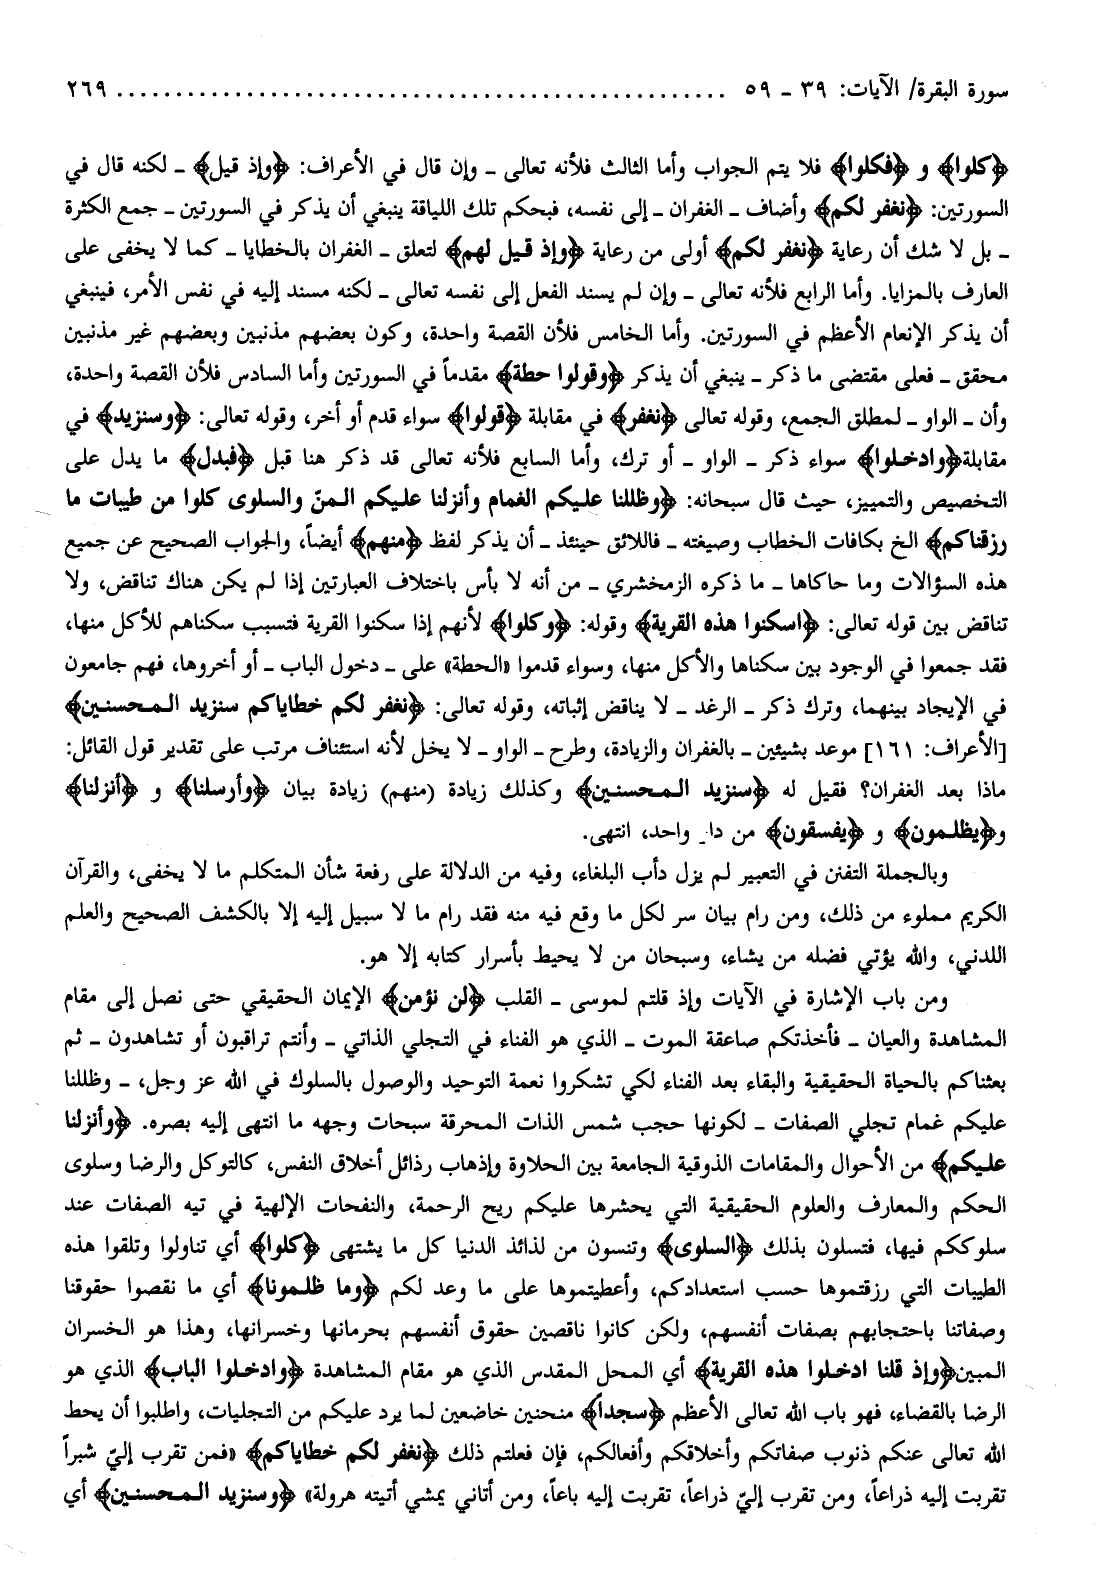 سورة البقرة/ الآيات: ٣٩ ـ ٥٩ ................................................... ٢٦٩
﴿كلوا﴾ و ﴿فكلوا﴾ فلا يتم الجواب وأما الثالث فلأنه تعالى ـ وإن قال في الأعراف: ﴿وإذ قيل﴾ ـ لكنه قال في
السورتين: ﴿نغفر لكم﴾ وأضاف ـ الغفران ـ إلى نفسه، فبحكم تلك اللياقة ينبغي أن يذكر في السورتين ـ جمع الكثرة
ـ بل لا شك أن رعاية ﴿نغفر لكم﴾ أولى من رعاية ﴿وإذ قيل لهم﴾ لتعلق ـ الغفران بالخطايا ـ كما لا يخفى على
العارف بالمزايا. وأما الرابع فلأنه تعالى ـ وإن لم يسند الفعل إلى نفسه تعالى ـ لكنه مسند إليه في نفس الأمر، فينبغي
أن يذكر الإنعام الأعظم في السورتين. وأما الخامس فلأن القصة واحدة، وكون بعضهم مذنبين وبعضهم غير مذنبين
محقق ـ فعلى مقتضى ما ذكر ـ ينبغي أن يذكر ﴿وقولوا حطة﴾ مقدماً في السورتين وأما السادس فلأن القصة واحدة،
وأن ـ الواو ـ لمطلق الجمع، وقوله تعالى ﴿نغفر﴾ في مقابلة ﴿قولوا﴾ سواء قدم أو أخر، وقوله تعالى: ﴿وسنزيد﴾ في
مقابلة﴿وادخلوا﴾ سواء ذكر ـ الواو ـ أو ترك، وأما السابع فلأنه تعالى قد ذكر هنا قبل ﴿فبدل﴾ ما يدل على
التخصيص والتمييز، حيث قال سبحانه: ﴿وظللنا عليكم الغمام وأنزلنا عليكم المنّ والسلوى كلوا من طيبات ما
رزقناكم﴾ الخ بكافات الخطاب وصيغته ـ فاللائق حينئذ ـ أن يذكر لفظ ﴿منهم﴾ أيضاً، والجواب الصحيح عن جميع
هذه السؤالات وما حاكاها ـ ما ذكره الزمخشري ـ من أنه لا بأس باختلاف العبارتين إذا لم يكن هناك تناقض، ولا
تناقض بين قوله تعالى: ﴿اسكنوا هذه القرية﴾ وقوله: ﴿وكلوا﴾ لأنهم إذا سكنوا القرية فتسبب سكناهم للأكل منها،
فقد جمعوا في الوجود بين سكناها والأكل منها، وسواء قدموا «الحطة» على ـ دخول الباب ـ أو أخروها، فهم جامعون
في الإيجاد بينهما، وترك ذكر ـ الرغد ـ لا يناقض إثباته، وقوله تعالى: ﴿نغفر لكم خطاياكم سنزيد المحسنين﴾
[الأعراف: ١٦١] موعد بشيئين ـ بالغفران والزيادة، وطرح ـ الواو ـ لا يخل لأنه استئناف مرتب على تقدير قول القائل:
ماذا بعد الغفران؟ فقيل له ﴿سنزيد المحسنين﴾ وكذلك زيادة (منهم) زيادة بيان ﴿وأرسلنا﴾ و ﴿أنزلنا﴾
و﴿يظلمون﴾ و ﴿يفسقون﴾ من دا واحد، انتهى.
وبالجملة التفنن في التعبير لم يزل دأب البلغاء، وفيه من الدلالة على رفعة شأن المتكلم ما لا يخفى، والقرآن
الكريم مملوء من ذلك، ومن رام بيان سر لكل ما وقع فيه منه فقد رام ما لا سبيل إليه إلا بالكشف الصحيح والعلم
اللدني، والله يؤتي فضله من يشاء، وسبحان من لا يحيط بأسرار كتابه إلا هو.
ومن باب الإشارة في الآيات وإذ قلتم لموسى ـ القلب ﴿لن نؤمن﴾ الإيمان الحقيقي حتى نصل إلى مقام
المشاهدة والعيان ـ فأخذتكم صاعقة الموت ـ الذي هو الفناء في التجلي الذاتي ـ وأنتم تراقبون أو تشاهدون ـ ثم
بعثناكم بالحياة الحقيقية والبقاء بعد الفناء لكي تشكروا نعمة التوحيد والوصول بالسلوك في الله عز وجل، ـ وظللنا
عليكم غمام تجلي الصفات ـ لكونها حجب شمس الذات المحرقة سبحات وجهه ما انتهى إليه بصره. ﴿وأنزلنا
عليكم﴾ من الأحوال والمقامات الذوقية الجامعة بين الحلاوة وإذهاب رذائل أخلاق النفس، كالتوكل والرضا وسلوى
الحكم والمعارف والعلوم الحقيقية التي يحشرها عليكم ريح الرحمة، والنفحات الإلهية في تيه الصفات عند
سلوككم فيها، فتسلون بذلك ﴿السلوى﴾ وتنسون من لذائذ الدنيا كل ما يشتهى ﴿كلوا﴾ أي تناولوا وتلقوا هذه
الطيبات التي رزقتموها حسب استعدادكم، وأعطيتموها على ما وعد لكم ﴿وما ظلمونا﴾ أي ما نقصوا حقوقنا
وصفاتنا باحتجابهم بصفات أنفسهم، ولكن كانوا ناقصين حقوق أنفسهم بحرمانها وخسرانها، وهذا هو الخسران
المبين﴿وإذ قلنا ادخلوا هذه القرية﴾ أي المحل المقدس الذي هو مقام المشاهدة ﴿وادخلوا الباب﴾ الذي هو
الرضا بالقضاء، فهو باب الله تعالى الأعظم ﴿سجداً﴾ منحنين خاضعين لما يرد عليكم من التجليات، واطلبوا أن يحط
الله تعالى عنكم ذنوب صفاتكم وأخلاقكم وأفعالكم، فإن فعلتم ذلك ﴿نغفر لكم خطاياكم﴾ «فمن تقرب إليّ شبراً
تقربت إليه ذراعاً، ومن تقرب إليّ ذراعاً، تقربت إليه باعاً، ومن أتاني يمشي أتيته هرولة» ﴿وسنزيد المحسنين﴾ أي